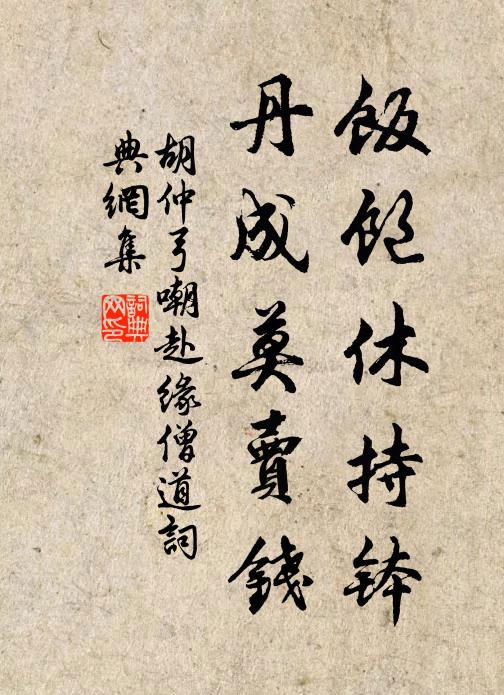 飯飽休持鉢
丹成莫賣錢
胡仲弓嘲赴緣僧道詞
典網集
詞典網印